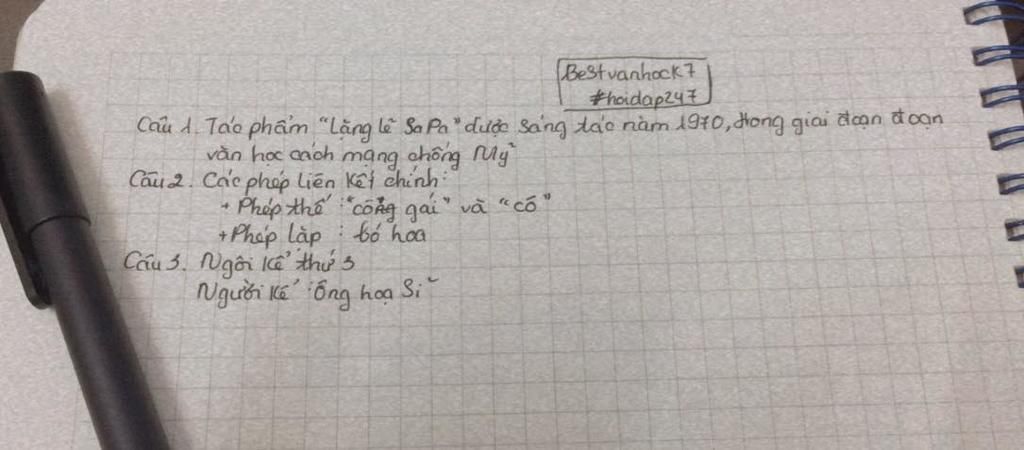 Bestvanhock7
#hoidap247
Câu 1. Tác phẩm "Lặng lẽ Sa Pa" được sáng tác năm 1970, trong giai đoạn đoạn
văn học cách mạng chống Mỹ
Câu 2. Các phép liên kết chính:
+ Phép thế : "công gái" và "cô"
+ Phép lặp : bó hoa
Câu 3. Ngôi kể thứ 3
Người kể : Ông hoạ Sĩ